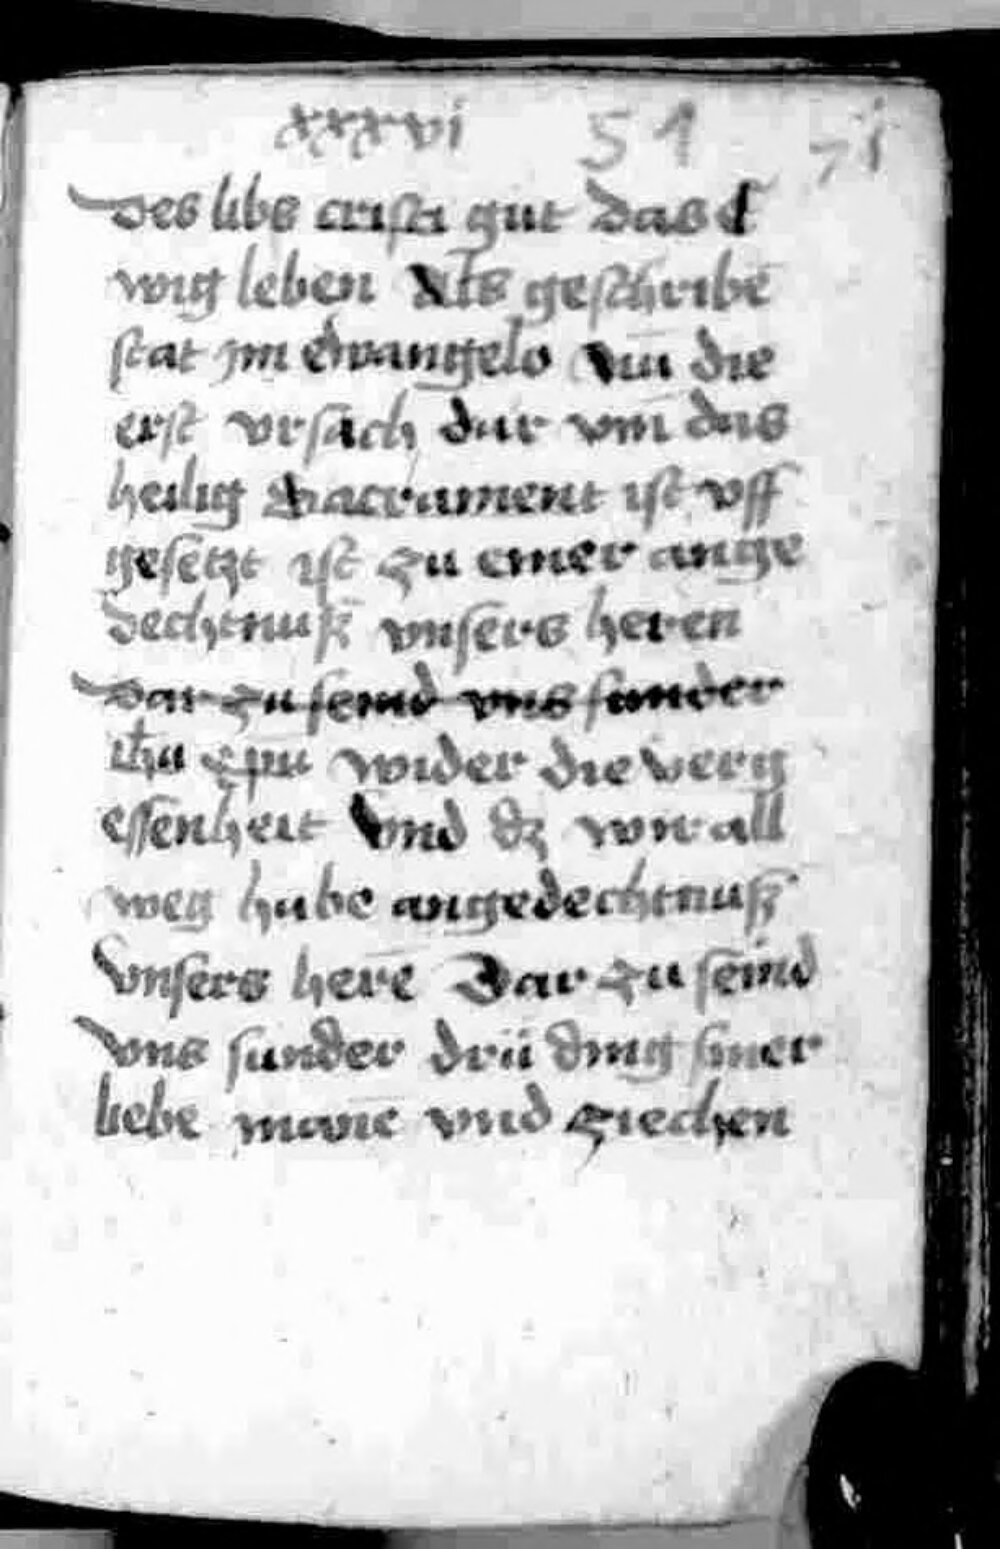 xxxvi 51 71
des libs cristi git das E
wig leben Als geschribē
stat jm Ewangelo Nū die
erst vrsach dar vm̄ das
heilig Sacrament ist vff
gesetzt ist zu einer ange
dechtnuß vnsers heren
dar zu seind vns sunder
ihū xp̄u wider die verg
essenheit Vnd dz wir all
weg habe angedechtnuß
Vnsers herē Dar zu seind
Vns sunder drü ding siner
liebe vnd ziechen